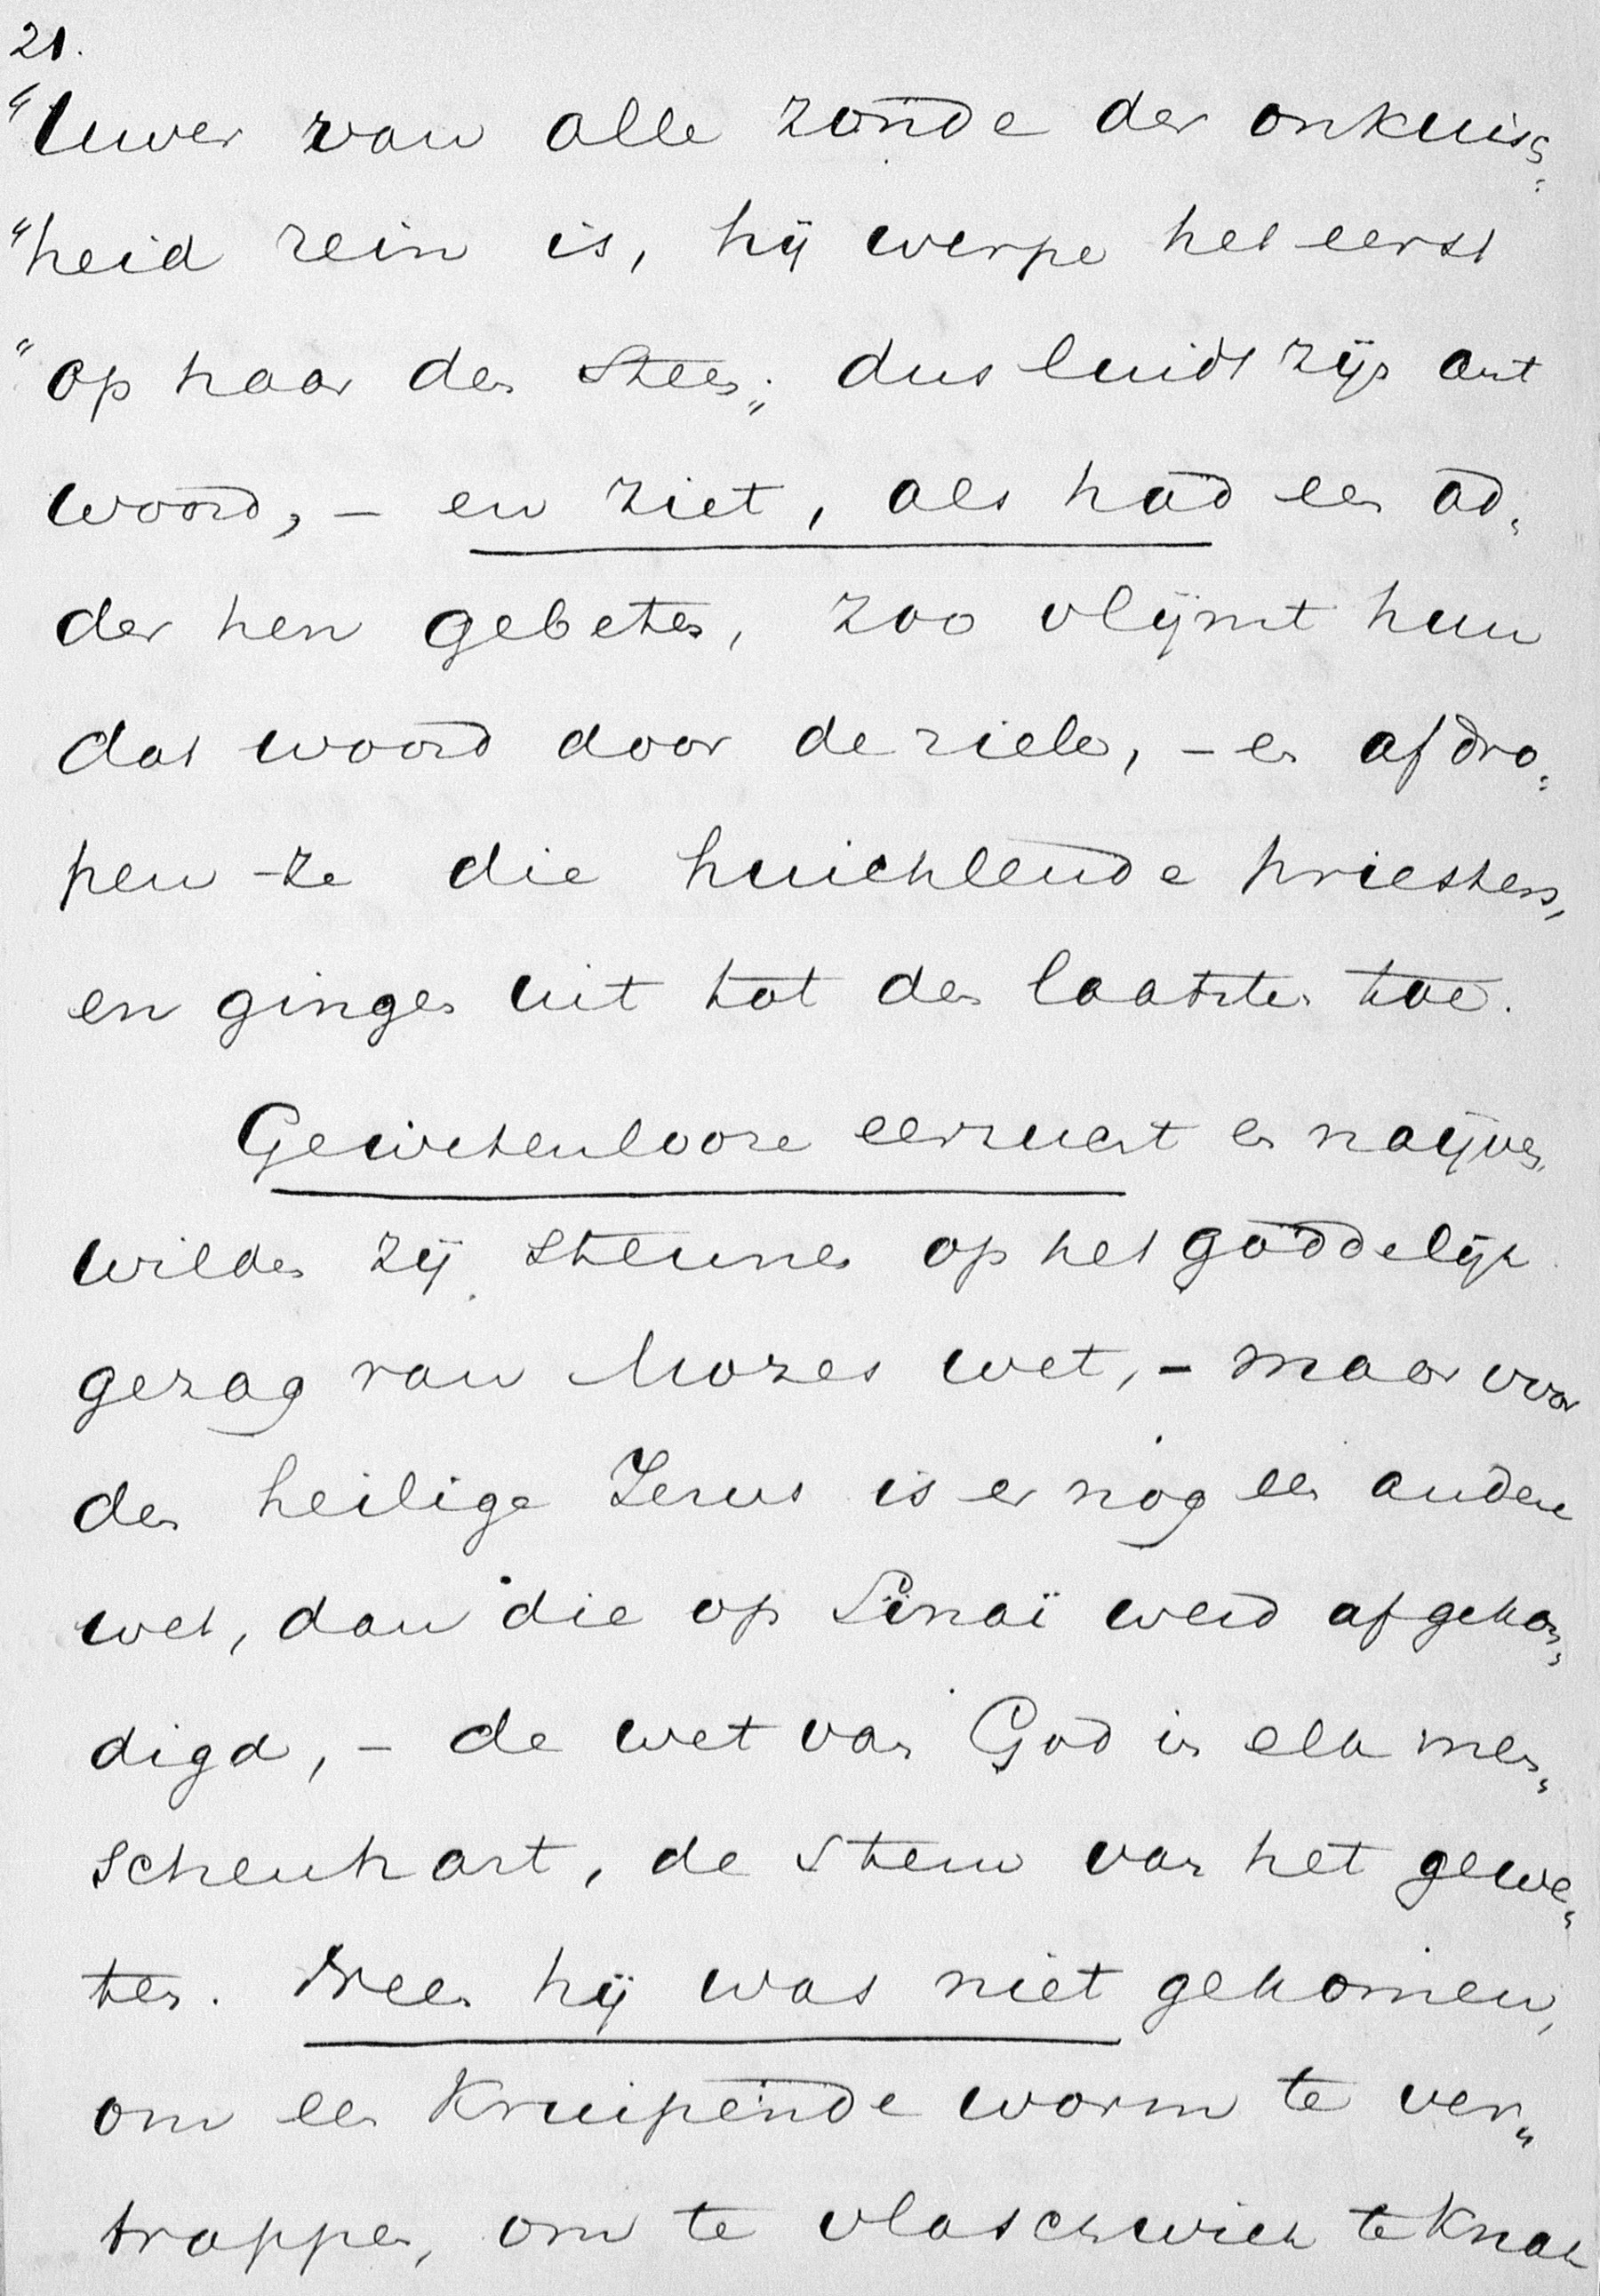 21.
"Uwer van alle zonde der onkuisch=
"heid rein is, hij werpe het eerst
"op haar den steen„; dus luidt zijn ant
woord, – en ziet, als had een ad„
der hen gebeten, zoo vlijmt hun
dat woord door de ziele, – en afdro=
pen ze die huichlende priesters,
en gingen uit tot den laatsten toe.
Gewetenlooze eerzucht en naijver,
wilden zij steunen op het goddelijk
gezag van Mozes wet, – maar voor
den heilige Jezus is er nog een andere
wet, dan die op Sinaï werd afgekon„
digd, – de wet van God in elk men„
schenhart, de stem van het gewe„
ten. Neen hij was niet gekomen,
om een kruipende worm te ver„
trappen, om te vlaschwiek te knak